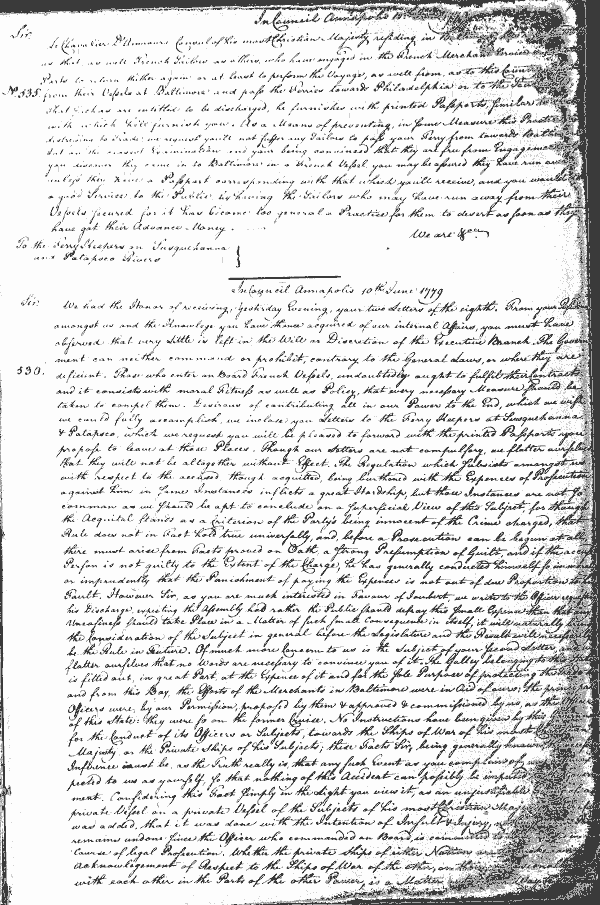 In Council Annapolis
Sir,
Le Chevalier D'Annmours Consul of his most Christian Majesty, residing in
as that as well French Sailors as others, who have engaged in the French Merchant Service
Ports to return thither again or at least to perform the Voyage, as well from, as to this
No. 535. from their Vessels at Baltimore and pass the Ferries toward Philadelphia or to the
that such as are entitled to be discharged, he furnishes with printed Passports, similar to
with which he'll furnish you. As a Means of preventing, in some Measure this Practice
distressing to Trade, we request you'll not suffer any Sailors to pass your Ferry from towards
but on the Examination and your being convinced that they are free from Engagement
you discover they came in to Baltimore in a French Vessel you may be assured they have run away
unless they have a Passport corresponding with that which you'll receive, and you would do
a good Service to the Public in having the Sailors who may have run away from their
Vessels secured for it has become too general a Practice for them to desert as soon as they
have got their Advance Money.
We are &ca.
To the Ferry Keepers on Susquehanna
and Patapsco Rivers
In Council Annapolis 10th June 1779
Sir:
We had the Honor of receiving, Yesterday Evening, your two Letters of the eighth. From your
amongst us and the Knowlege you have thence acquired of our internal Affairs, you must have
observed that very little is left in the Will or Discretion of the Executive Branch. The Govern
ment can neither command or prohibit, contrary to the General Laws, or where they are
530. deficient. Those who enter on Board French Vessels, undoubtedly ought to fulfil their Contracts
and it consists with moral Fitness as well as Policy, that every necessary Measure should be
taken to compel them. Desirous of contributing all in our Power to the End, which we wish
we could fully accomplish, we inclose you Letters to the Ferry Keepers at Susquehanna
& Patapsco, which we request you will be pleased to forward with the printed Passports you
propose to leave at those Places. Though our Letters are not compulsory, we flatter ourselves
that they will not be altogether without Effect. The Regulation which subsists amongst us
with respect to the accused though acquitted, being burthened with the Expences of Prosecution
against him in some Instances inflicts a great Hardship, but those Instances are not so
common as we should be apt to conclude on a superficial View of this Subject, for though
the Acquittal stands as a Criterion of the Party's being innocent of the Crime charged, that
Rule does not in Fact hold true universally, and, before a Prosecution can be begun at all,
there must arise from Facts proved on Oath a strong Presumption of Guilt, and if the accused
Person is not guilty to the Extent of the Charge, he has generally conducted himself so
or imprudently that the Punishment of paying the Expences is not out of due Proportion to
Fault. However Sir, as you are much interested in Favour of we write to the Officer
his Discharge, expecting the Assembly had rather the Public should defray this small Expence than any
Uneasiness should take Place in a Matter of such small Consequence in itself, it will naturally bring
the Consideration of the Subject in general before the Legislature and the Result will necessarily
be the Rule in Future. Of much more Concern to us is the Subject of your second Letter, and
flatter ourselves that no Words are necessary to convince you of it. The Galley belonging to this State
is fitted out, in great Part, at the Expence of it and for the sole Purpose of protecting the Trade
and from this Bay, the Efforts of the Merchants in Baltimore were in Aid of ours; the
Officers were, by our Permission, proposed by them & approved & commissioned by us, as the
of this State: they were so on the former Cruise. No Instructions have been given by this
for the Conduct of its Officers or Subjects, towards the Ships of War of his most
Majesty or the Private Ships of his Subjects, these Facts Sir, being generally known,
Influence must be, as the Truth really is, that any such Event as you complain of,
pected to us as yourself. So that nothing of this Accident can possibly be imputed
ment. Considering this Fact simply in the Light you view it, as an unjustifiable
private Vessel on a private Vessel of the Subjects of his most Christian Majesty
was added, that it was done with the Intention of Insult & Injury,
remains undone since the Officer who commanded on Board is committed to
Course of legal Prosecution. Whether the private Ships of either Nation are
Acknowlegement of Respect to the Ships of War of the other, on their
with each other in the Ports of the other Power, is a Matter